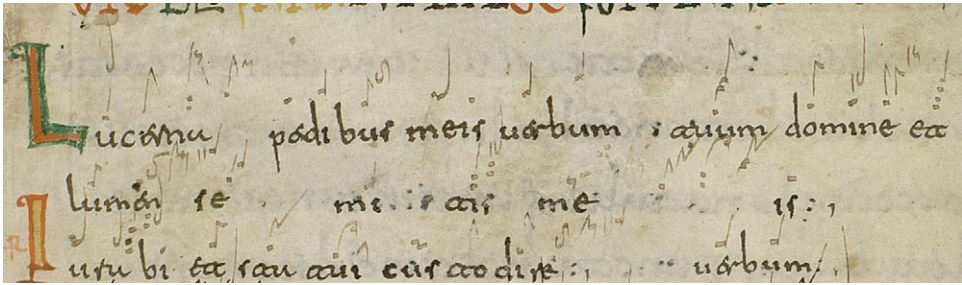 Lucerna pedibus meis uerbum tuum domine et
lumen se mi tis me is:,
Iura bi et sta tui cus todire:, uerbum